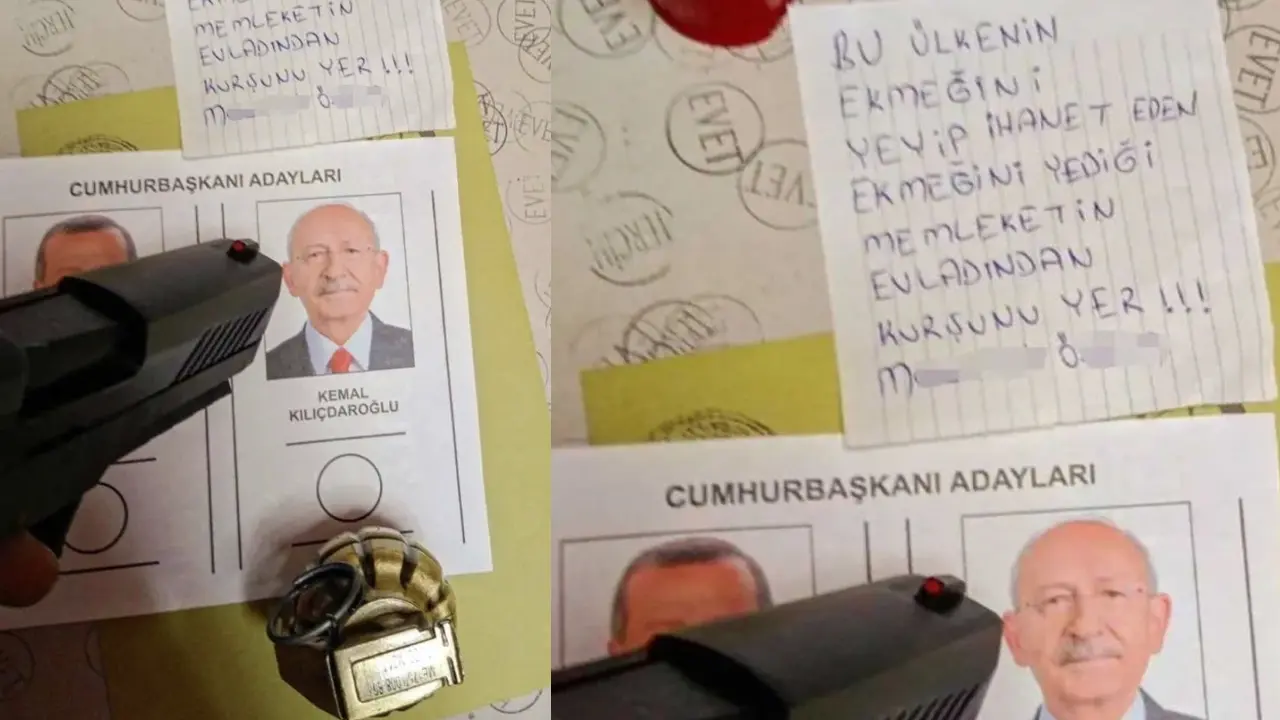 MEMLEKETİN
EVLADINDAN
KURŞUNU YER !!!
M Ö
CUMHURBAŞKANI ADAYLARI
KEMAL
KILIÇDAROĞLU
EVET
BU ÜLKENİN
EKMEĞİNİ
YEYİP İHANET EDEN
EKMEĞİNİ YEDİĞİ
MEMLEKETİN
EVLADINDAN
KURŞUNU YER !!!
M Ö
EVET
EVET
EVET
TERCİH
CUMHURBAŞKANI ADAYLARI